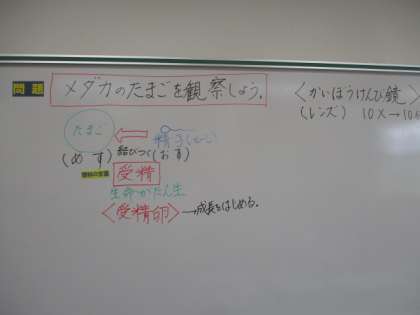 問題 メダカのたまごを観察しよう。
〈かいぼうけんび鏡〉
(レンズ) 10×→10
たまご
精子
(めす) 結びつく (おす)
理科の言葉 受精
生命がたん生
〈受精卵〉→成長をはじめる。